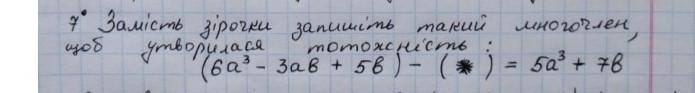 7° Замість зірочки запишіть такий многочлен,
щоб утворилася тотожність :
(6а³ - 3ав + 5в) - ( * ) = 5а³ + 7в